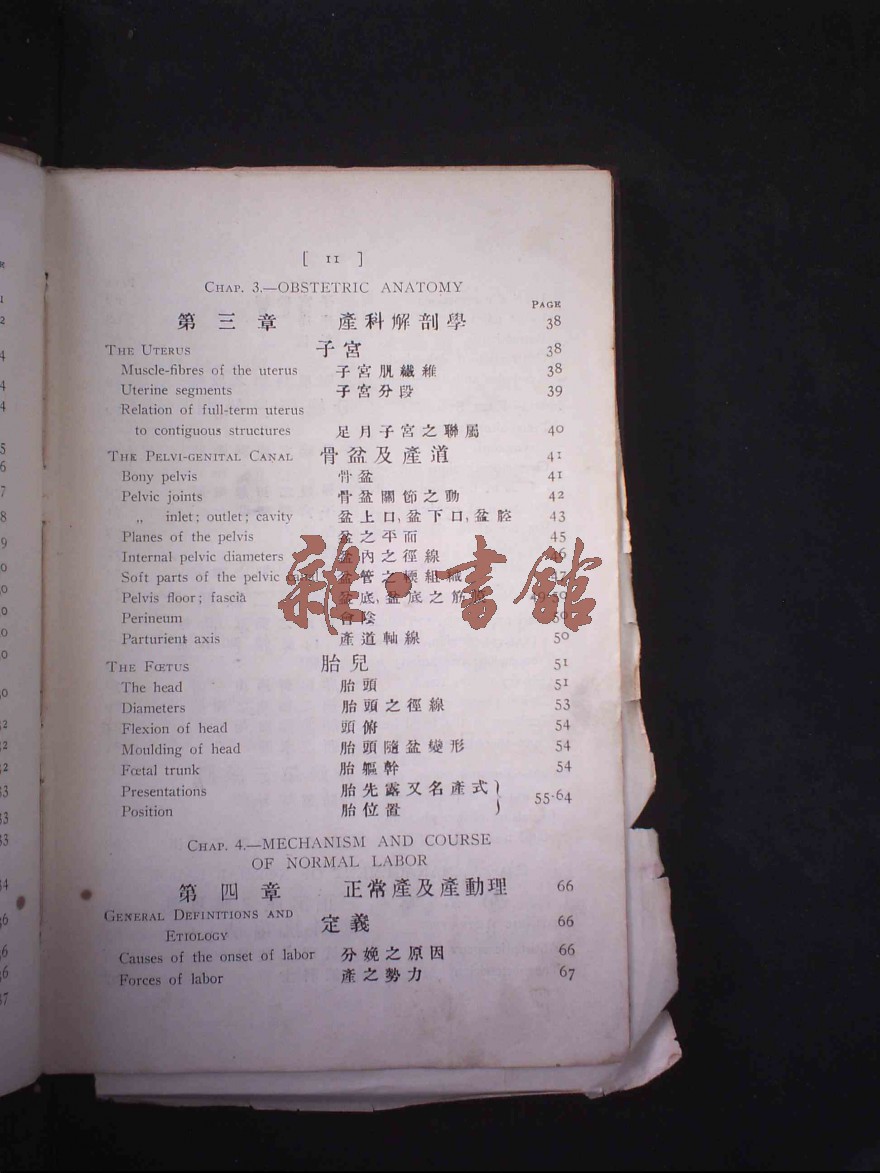 [ 11 ]
CHAP. 3.—OBSTETRIC ANATOMY
PAGE
第三章 產科解剖學 38
THE UTERUS 子宮 38
Muscle-fibres of the uterus 子宮肌纖維 38
Uterine segments 子宮分段 39
Relation of full-term uterus
to contiguous structures 足月子宮之聯屬 40
THE PELVI-GENITAL CANAL 骨盆及產道 41
Bony pelvis 骨盆 41
Pelvic joints 骨盆關節之動 42
„ inlet; outlet; cavity 盆上口,盆下口,盆腔 43
Planes of the pelvis 盆之平面 45
Internal pelvic diameters 盆內之徑線 46
Soft parts of the pelvic canal 盆管之輭組織
Pelvis floor; fascia 盆底,盆底之筋
Perineum 會陰 50
Parturient axis 產道軸線 50
THE FŒTUS 胎兒 51
The head 胎頭 51
Diameters 胎頭之徑線 53
Flexion of head 頭俯 54
Moulding of head 胎頭隨盆變形 54
Fœtal trunk 胎軀幹 54
Presentations 胎先露又名產式
Position 胎位置 } 55-64
CHAP. 4.—MECHANISM AND COURSE
OF NORMAL LABOR
第四章 正常產及產動理 66
GENERAL DEFINITIONS AND
ETIOLOGY 定義 66
Causes of the onset of labor 分娩之原因 66
Forces of labor 產之勢力 67
雜·書館